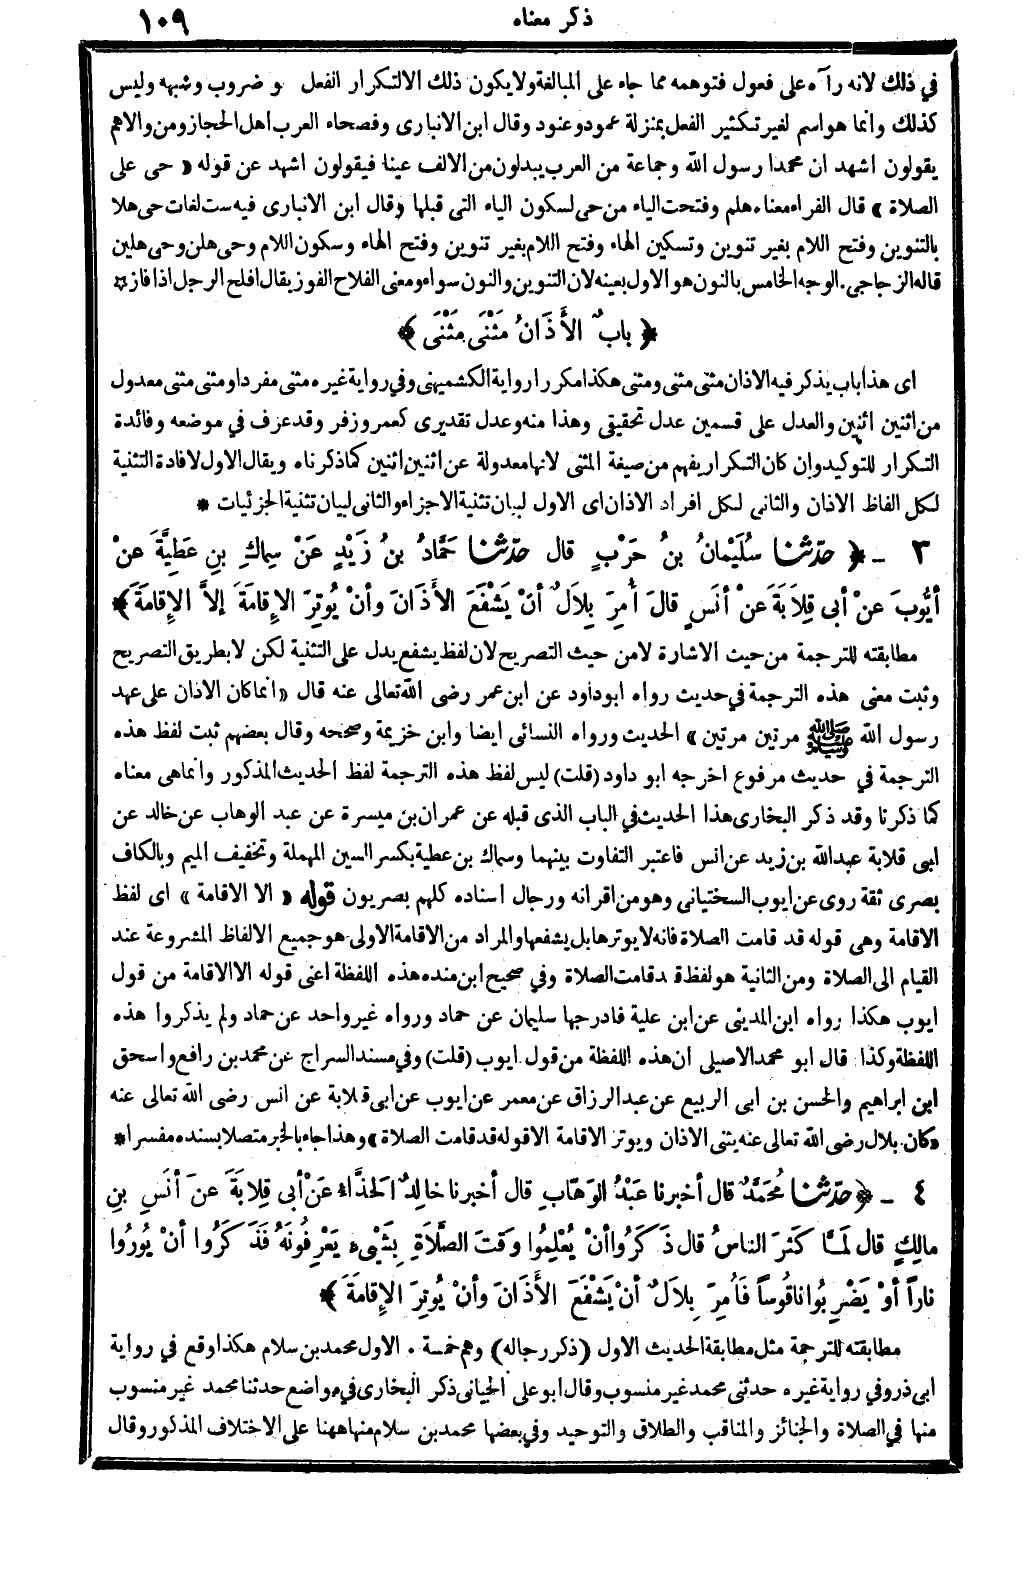 ذكر معناه ١٠٩
في ذلك لانه رآه على فعول فتوهمه مما جاء على المبالغة ولا يكون ذلك الا لتكرار الفعل و ضروب وشبهه وليس
كذلك وانما هو اسم لغير تكثير الفعل بمنزلة عمود وعنود وقال ابن الانبارى وفصحاء العرب اهل الحجاز ومن والاهم
يقولون اشهد ان محمدا رسول الله وجماعة من العرب يبدلون من الالف عينا فيقولون اشهد عن قوله « حى على
الصلاة » قال الفراء معناه هلم وفتحت الياء من حى لسكون الياء التى قبلها وقال ابن الانبارى فيه ست لغات حى هلا
بالتنوين وفتح اللام بغير تنوين وتسكين الهاء وفتح اللام بغير تنوين وفتح الهاء وسكون اللام وحى هلن وحى هلين
قاله الزجاجى. الوجه الخامس بالنون هو الاول بعينه لان التنوين والنون سواء ومعنى الفلاح الفوز يقال افلح الرجل اذا فاز *
﴿ بابٌ الأَذَانُ مَثْنَى مَثْنَى ﴾
اى هذا باب يذكر فيه الاذان مثنى مثنى ومثنى هكذا مكررا رواية الكشميهنى وفي رواية غيره مثنى مفردا ومثنى مثنى معدول
من اثنين اثنين والعدل على قسمين عدل تحقيقى وهذا منه وعدل تقديرى كعمر وزفر وقد عرف في موضعه وفائدة
التكرار للتوكيد وان كان التكرار يفهم من صيغة المثنى لانها معدولة عن اثنين اثنين كما ذكرناه ويقال الاول لافادة التثنية
لكل الفاظ الاذان والثانى لكل افراد الاذان اى الاول لبيان تثنية الاجزاء والثانى لبيان تثنية الجزئيات *
٣ - ﴿ حدّثنا سُلَيْمَانُ بنُ حَرْبٍ قال حدّثنا حَمَّادُ بنُ زَيْدٍ عَنْ سِمَاكِ بنِ عَطِيَّةَ عَنْ
أيُّوبَ عَنْ أبى قِلاَبَةَ عَنْ أنَسٍ قالَ أُمِرَ بِلاَلٌ أنْ يَشْفَعَ الأَذَانَ وأنْ يُوتِرَ الإِقامَةَ إلاَّ الإِقامَةَ ﴾
مطابقته للترجمة من حيث الاشارة لا من حيث التصريح لان لفظ يشفع يدل على التثنية لكن لا بطريق التصريح
وثبت معنى هذه الترجمة في حديث رواه ابو داود عن ابن عمر رضى الله تعالى عنه قال « انما كان الاذان على عهد
رسول الله ﷺ مرتين مرتين » الحديث ورواه النسائى ايضا وابن خزيمة وصححه وقال بعضهم ثبت لفظ هذه
الترجمة في حديث مرفوع اخرجه ابو داود (قلت) ليس لفظ هذه الترجمة لفظ الحديث المذكور وانما هى معناه
كما ذكرنا وقد ذكر البخارى هذا الحديث في الباب الذى قبله عن عمران بن ميسرة عن عبد الوهاب عن خالد عن
ابى قلابة عبدالله بن زيد عن انس فاعتبر التفاوت بينهما وسماك بن عطية بكسر السين المهملة وتخفيف الميم وبالكاف
بصرى ثقة روى عن ايوب السختيانى وهو من اقرانه ورجال اسناده كلهم بصريون قوله « الا الاقامة » اى لفظ
الاقامة وهى قوله قد قامت الصلاة فانه لا يوترها بل يشفعها والمراد من الاقامة الاولى هو جميع الالفاظ المشروعة عند
القيام الى الصلاة ومن الثانية هو لفظ قد قامت الصلاة وفي صحيح ابن منده هذه اللفظة اعنى قوله الا الاقامة من قول
ايوب هكذا رواه ابن المدينى عن ابن علية فادرجها سليمان عن حماد ورواه غير واحد عن حماد ولم يذكروا هذه
اللفظة وكذا قال ابو محمد الاصيلى ان هذه اللفظة من قول ايوب (قلت) وفي مسند السراج عن محمد بن رافع واسحق
ابن ابراهيم والحسن بن ابى الربيع عن عبد الرزاق عن معمر عن ايوب عن ابى قلابة عن انس رضى الله تعالى عنه
« كان بلال رضى الله تعالى عنه يثنى الاذان ويوتر الاقامة الا قوله قد قامت الصلاة » وهذا جاء بالخبر متصلا بسنده مفسرا *
٤ - ﴿ حدّثنا مُحَمَّدٌ قال أخبرنا عَبْدُ الوَهَّابِ قال أخبرنا خالِدٌ الحَذَّاءُ عَنْ أبى قِلاَبَةَ عنَ أنَسِ بنِ
مالِكٍ قال لَمَّا كَثُرَ الناسُ قال ذَكَرُوا أنْ يُعْلِمُوا وقتَ الصَّلاَةِ بِشَىْءٍ يَعْرِفُونَهُ فَذَكَرُوا أنْ يُورُوا
ناراً أوْ يَضْرِبُوا ناقُوساً فَأُمِرَ بِلاَلٌ أنْ يَشْفَعَ الأَذَانَ وأنْ يُوتِرَ الإِقامَةَ ﴾
مطابقته للترجمة مثل مطابقة الحديث الاول (ذكر رجاله) وهم خمسة . الاول محمد بن سلام هكذا وقع في رواية
ابى ذر وفي رواية غيره حدثنى محمد غير منسوب وقال ابو على الجيانى ذكر البخارى في مواضع حدثنا محمد غير منسوب
منها في الصلاة والجنائز والمناقب والطلاق والتوحيد وفي بعضها محمد بن سلام منها ههنا على الاختلاف المذكور وقال